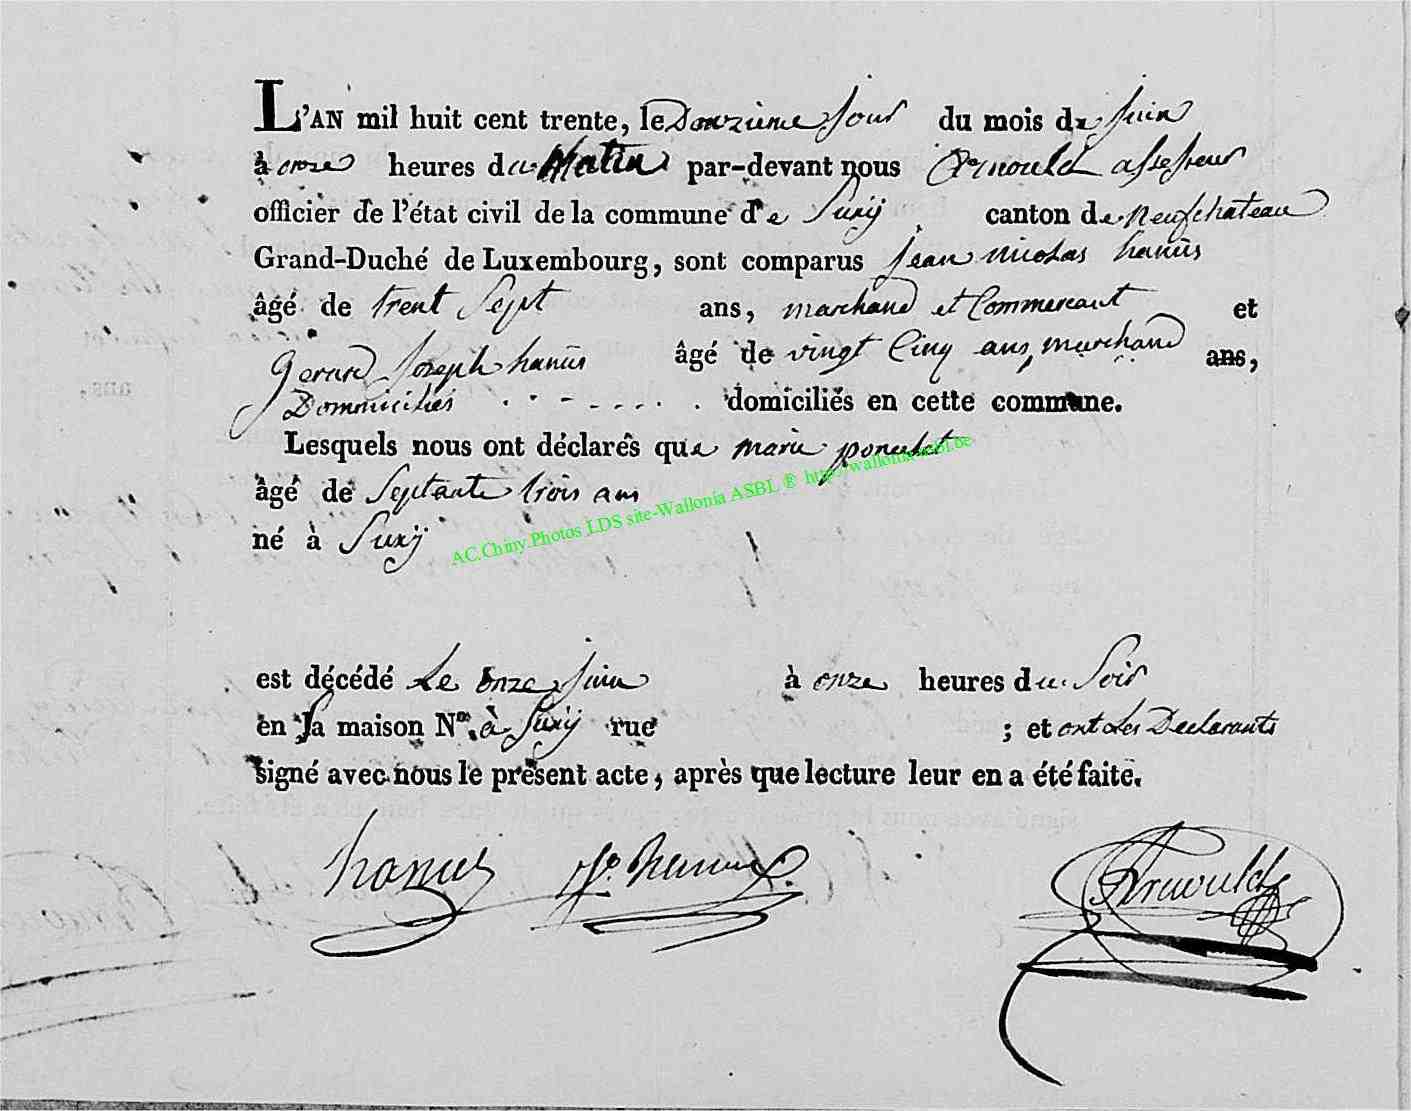 L'AN mil huit cent trente, le Douzieme jour du mois de juin
à onze heures du Matin par-devant nous Arnould assesseur
officier de l'état civil de la commune de Suxÿ canton de neufchateau
Grand-Duché de Luxembourg, sont comparus jean nicolas hanüs
âgé de trent Sept ans, marchand et Commercant et
Gerard Joseph hanüs âgé de vingt Cinq ans, marchand ans,
Dommiciliés . . - - . . . . domiciliés en cette commune.
Lesquels nous ont déclarés que marie poncelet
âgé de Septante trois ans
né à Suxÿ
AC.Chiny.Photos LDS site-Wallonia ASBL ® http://wallonia-asbl.be
est décédé Le onze juin à onze heures du Soir
en la maison N° à Suxÿ rue ; et ont Les Declarants
signé avec nous le présent acte, après que lecture leur en a été faite.
hanus hanus Arnould